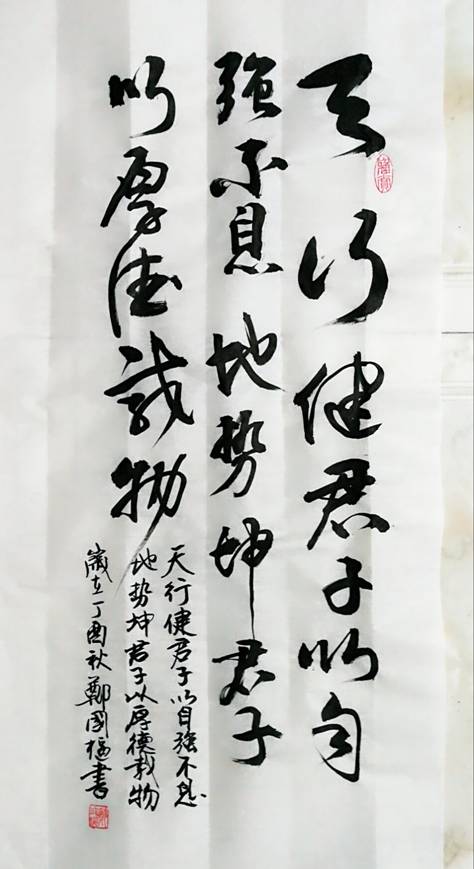 天行健君子以自
强不息地势坤君子
以厚德载物
天行健君子以自强不息
地势坤君子以厚德载物
岁在丁酉秋郑国
书